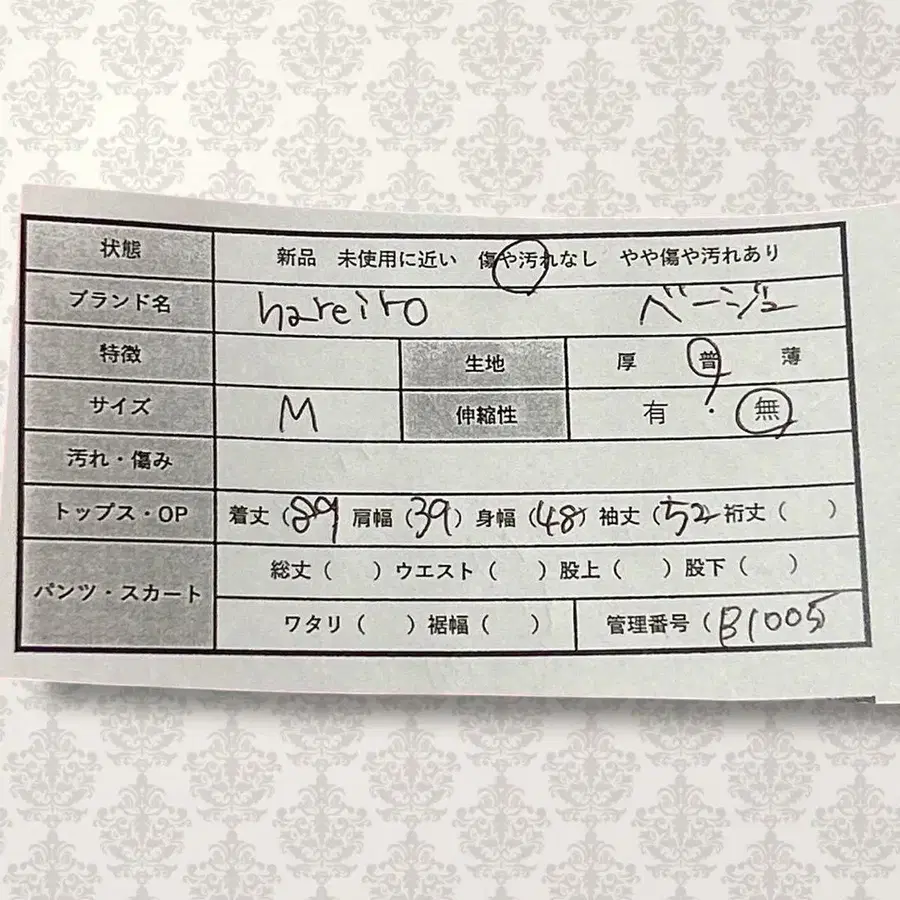 状態 新品 未使用に近い 傷や汚れなし やや傷や汚れあり
ブランド名 hareiro ベージュ
特徴 生地 厚 普 薄
サイズ M 伸縮性 有 無
汚れ・傷み
トップス・OP 着丈(89 肩幅(39) 身幅(48) 袖丈(52 裄丈( )
パンツ・スカート 総丈( )ウエスト( )股上( )股下( )
ワタリ( )裾幅( ) 管理番号(B1005